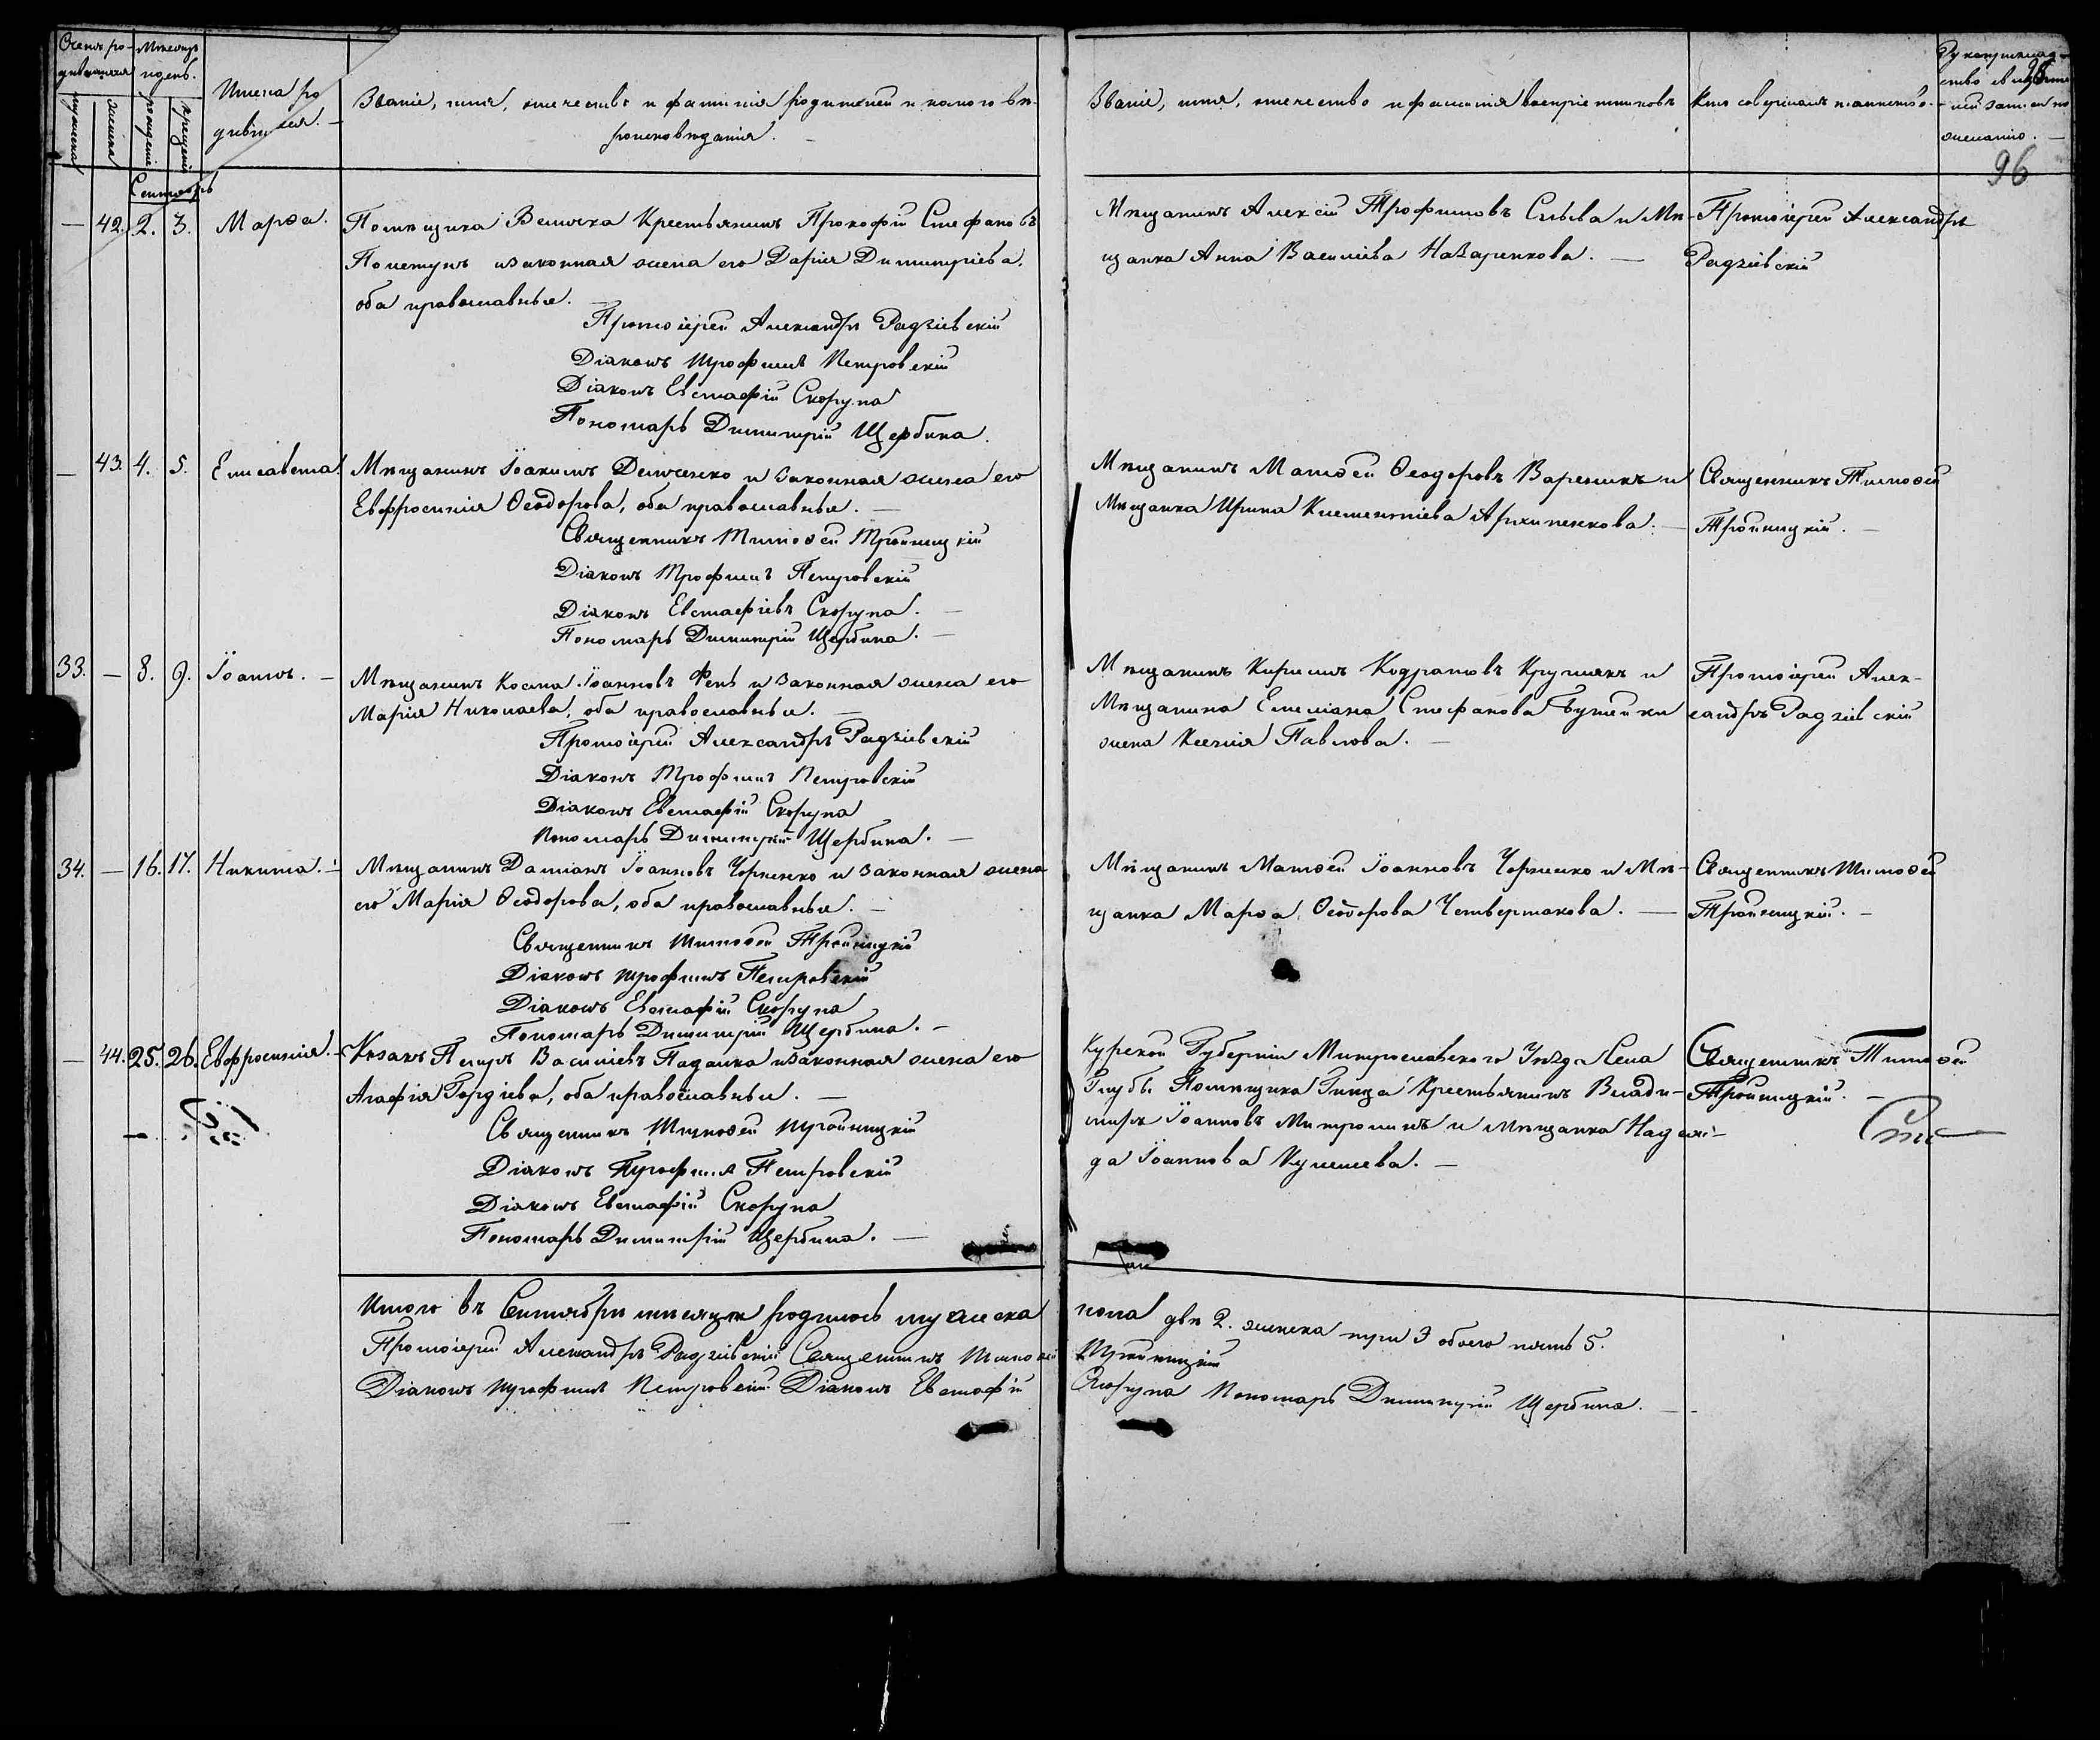 Счетъ ро-
дившихся
Мѣсяцъ
и день.
мужеска
женска
рожденіе
крещеніе
Имена ро
дившихся.
Званіе, имя, отечество и фамилія родителей и какого вѣ-
роисповѣданія.
Званіе, имя, отечество и фамилія воспріемниковъ
Кто совершалъ таинство.
Рукоприклад-
ство свидѣте
лей записи по
желанію.
96
Сентябрь
— 42. 2. 3. Марѳа.
Помѣщика Крестьянинъ Прокофій Стефановъ
и законная жена его Дарія Димитріева,
оба православные.
Протоіерей Александръ Радзіевскій
Діаконъ Трофимъ Петровскій
Діаконъ Евстафій Скорупа
Пономарь Димитрій Щербина.
Мѣщанинъ Алексій Трофимовъ и Мѣ-
щанка Анна Василіева Назаренкова. —
Протоіерей Александръ
Радзіевскій
— 43. 4. 5. Елисавета.
Мѣщанинъ Іоакимъ Демченко и законная жена его
Евфросинія Ѳеодорова, оба православные. —
Священникъ Тимоѳей Тройницкій
Діаконъ Трофимъ Петровскій
Діаконъ Евстафіевъ Скорупа. —
Пономарь Димитрій Щербина. —
Мѣщанинъ Матѳей Ѳеодоровъ Вареникъ и
Мѣщанка Ирина Климентіева Архипенкова. —
Священникъ Тимоѳей
Тройницкій. —
33. — 8. 9. Іоаннъ. —
Мѣщанинъ Косма Іоанновъ Фень и законная жена его
Марія Николаева, оба православные. —
Протоіерей Александръ Радзіевскій
Діаконъ Трофимъ Петровскій
Діаконъ Евстафій Скорупа
Пономарь Димитрій Щербина. —
Мѣщанинъ Кирилъ Кодратовъ Круглякъ и
Мѣщанина Емеліана Стефанова
жена Ксенія Павлова. —
Протоіерей Алек-
сандръ Радзіевскій
34. — 16. 17. Никита. —
Мѣщанинъ Даміанъ Іоанновъ Черненко и законная жена
его Марія Ѳеодорова, оба православные. —
Священникъ Тимоѳей Тройницкій
Діаконъ Трофимъ Петровскій
Діаконъ Евстафій Скорупа
Пономарь Димитрій Щербина. —
Мѣщанинъ Матѳей Іоанновъ Черненко и Мѣ-
щанка Марѳа Ѳеодорова Четвертакова. —
Священникъ Тимоѳей
Тройницкій. —
— 44. 25. 26. Евфросинія. —
Козакъ Петръ Василіевъ Падалка и законная жена его
Агафія Гордіева, оба православные. —
Священникъ Тимоѳей Тройницкій
Діаконъ Трофимъ Петровскій
Діаконъ Евстафій Скорупа
Пономарь Димитрій Щербина. —
Курской Губерніи Уѣзда Села
Помѣщика Крестьянинъ Влади-
миръ Іоанновъ Митрошинъ и мѣщанка Надеж-
да Іоаннова Кулешева. —
Священникъ Тимоѳей
Тройницкій. —
Итого въ Сентябрѣ мѣсяцѣ родилось мужеска пола два 2. женска три 3 обоего пять 5.
Протоіерей Александръ Радзіевскій Священникъ Тимоѳей Тройницкій
Діаконъ Трофимъ Петровскій Діаконъ Евстафій Скорупа Пономарь Димитрій Щербина. —